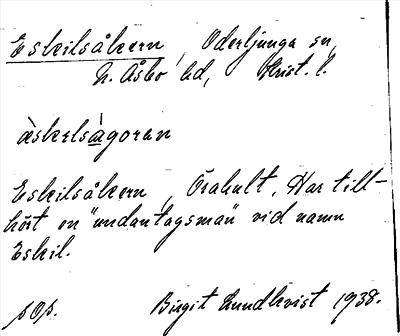 Eskilsåkern, Oderljunga sn,
N. Åsbo hd, Krist. l.
àskəlsàgoran
Eskilsåkern, Örahult. Har till-
hört en "undantagsman" vid namn
Eskil.
Birgit Lundkvist 1938.